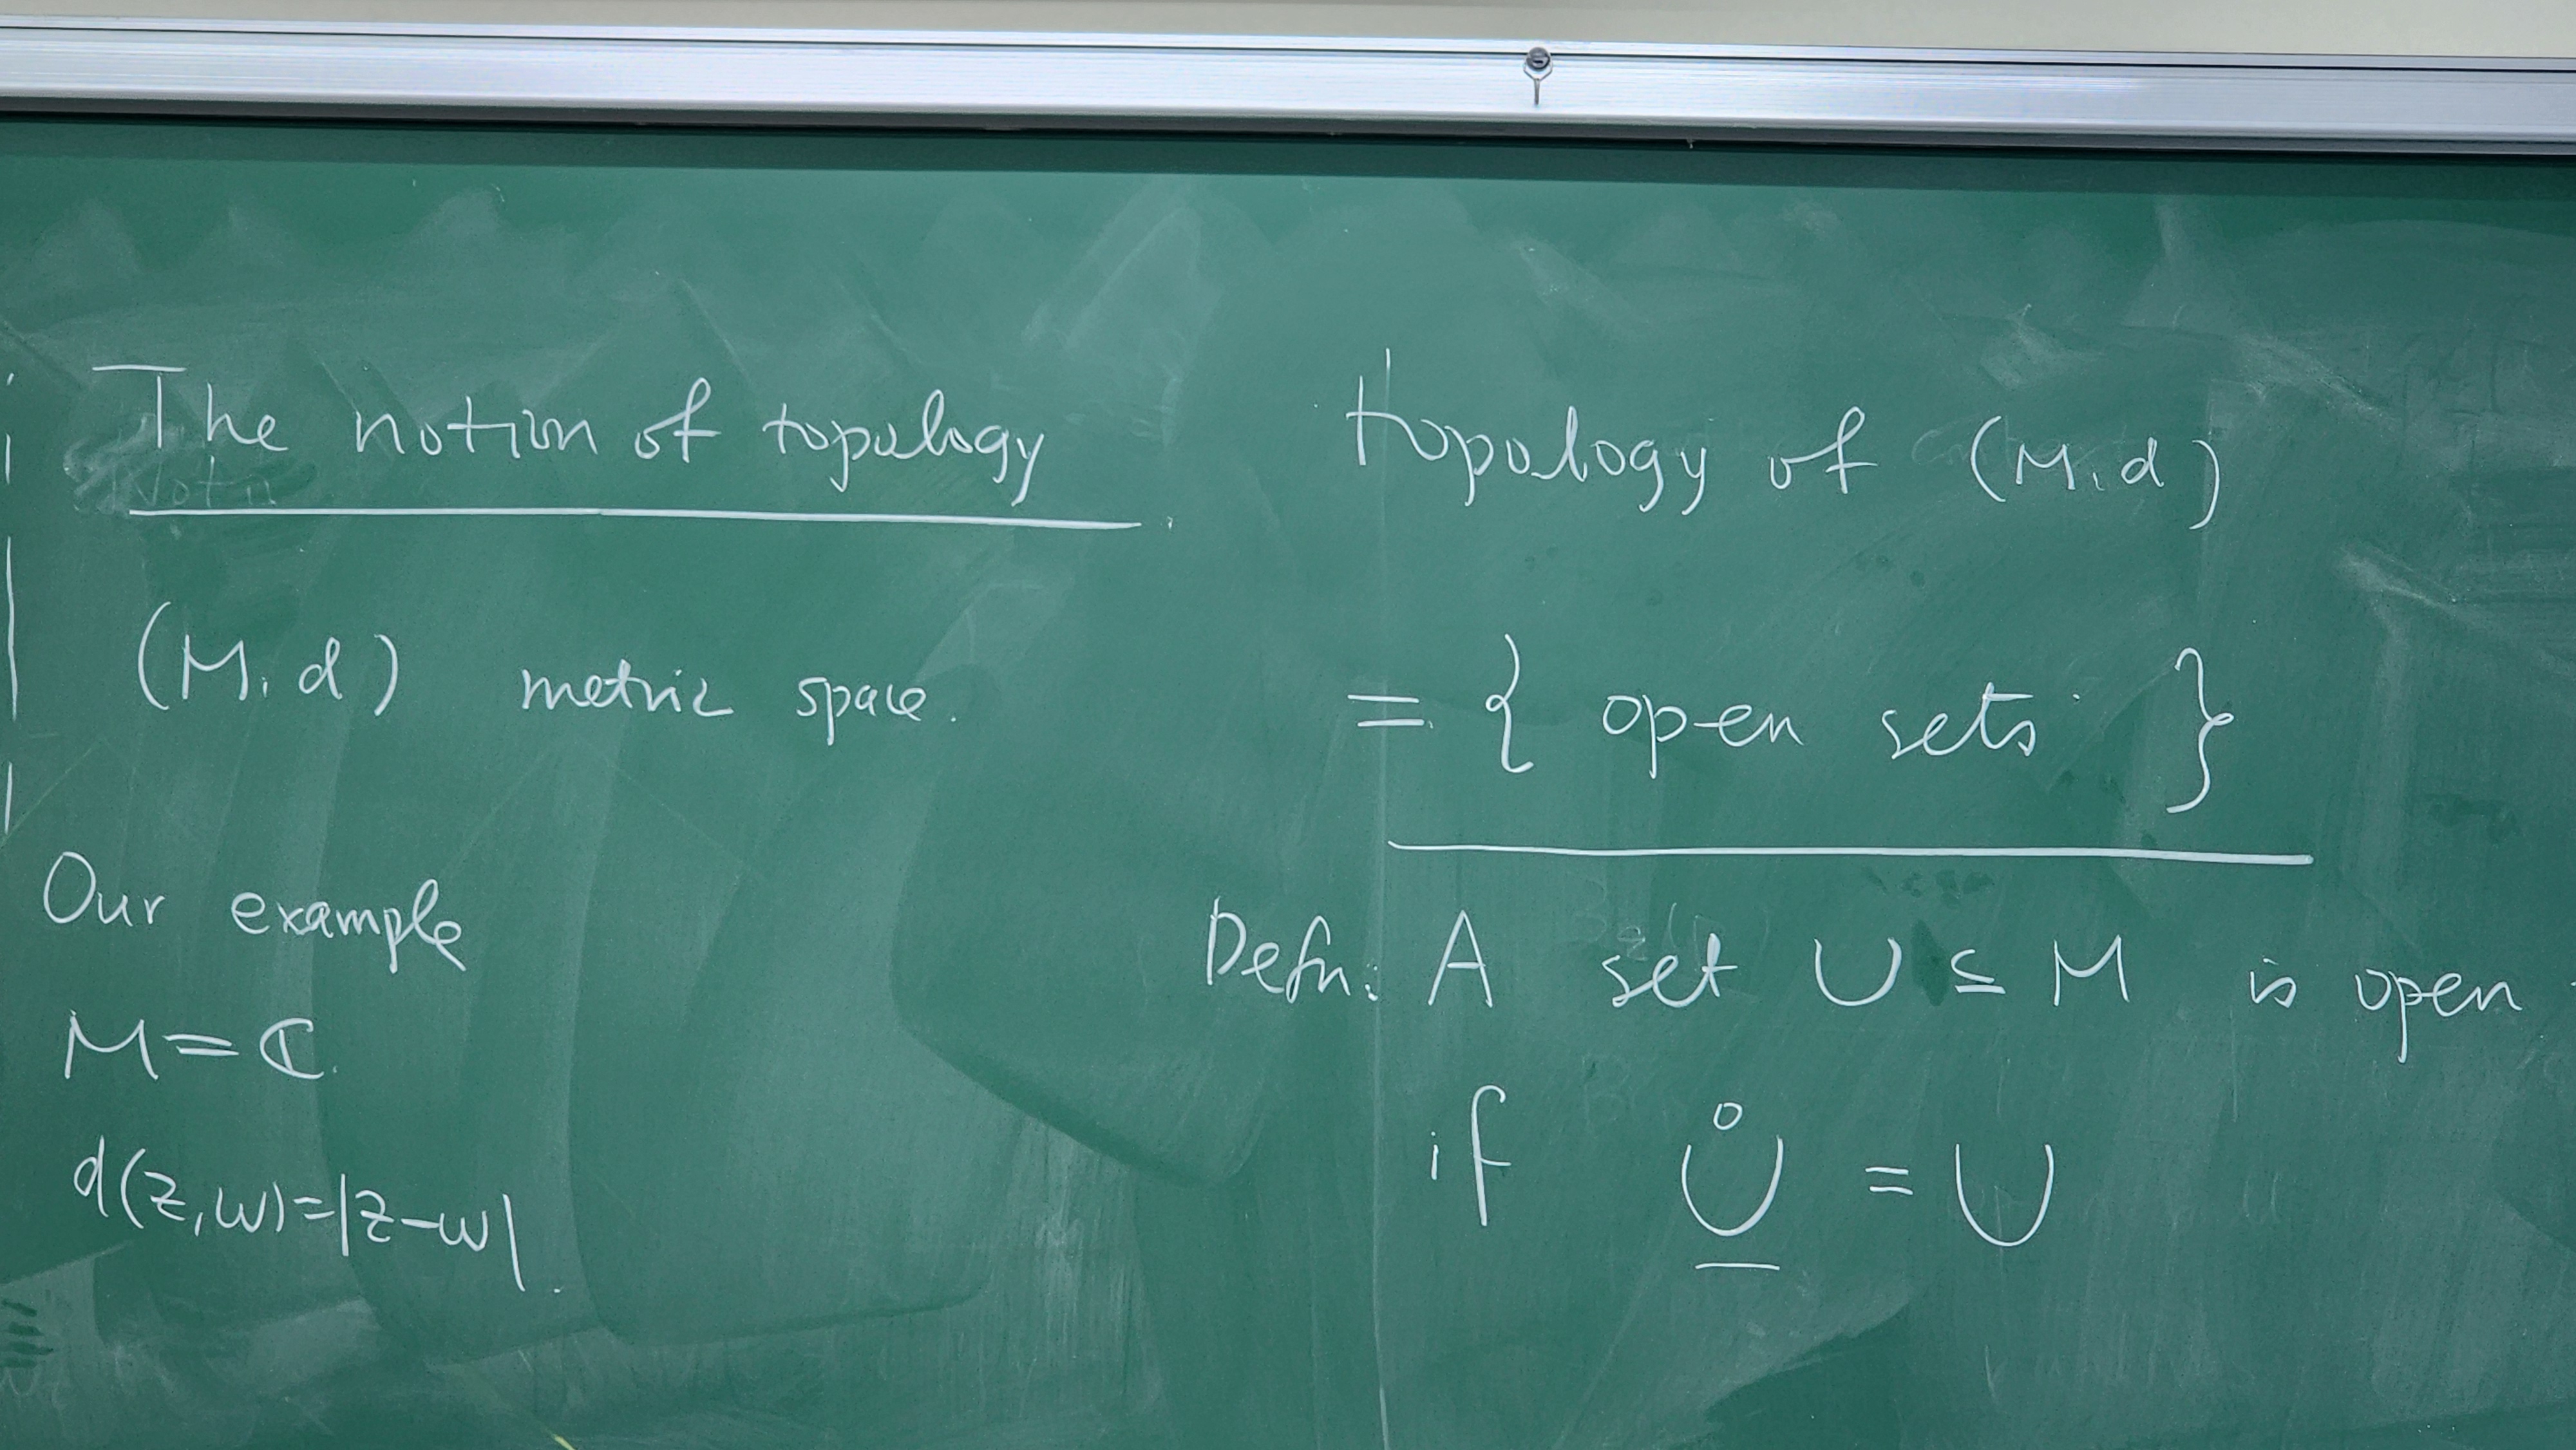 The notion of topology
(M, d) metric space.
Our example
M = ℂ
d(z,w)=|z-w|.
topology of (M, d)
= { open sets }
Defn: A set U ⊆ M is open
if Ů = U